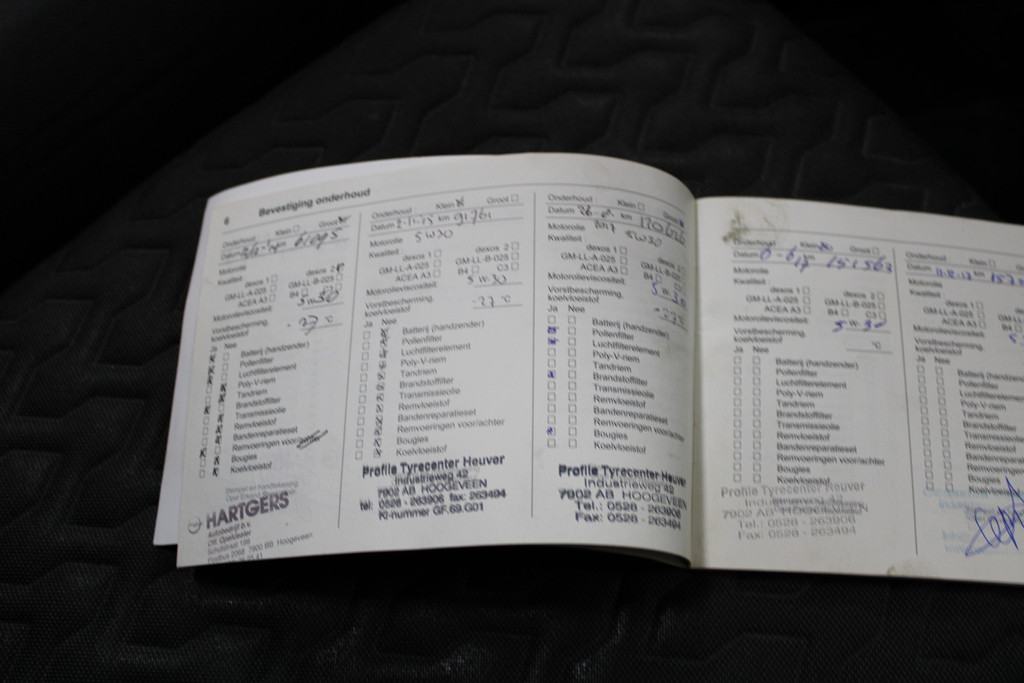 6 Bevestiging onderhoud
Onderhoud Klein Groot
Datum km 61095
Motorolie
Kwaliteit dexos 1 dexos 2
GM-LL-A-025 GM-LL-B-025
ACEA A3 B4
Motorolieviscositeit 5W30
Vorstbescherming, koelvloeistof -27 °C
Ja Nee
Batterij (handzender)
Pollenfilter
Luchtfilterelement
Poly-V-riem
Tandriem
Brandstoffilter
Transmissieolie
Remvloeistof
Bandenreparatieset
Remvoeringen voor/achter
Bougies
Koelvloeistof
Stempel en handtekening
HARTGERS
Autobedrijf b.v.
Off. Opeldealer
Schutstraat 198
Postbus 2068 7900 BB Hoogeveen
Onderhoud Klein Groot
Datum 2-11-15 km 91761
Motorolie 5W30
Kwaliteit dexos 1 dexos 2
GM-LL-A-025 GM-LL-B-025
ACEA A3 B4 C3
Motorolieviscositeit: 5W30
Vorstbescherming, koelvloeistof -27 °C
Ja Nee
Batterij (handzender)
Pollenfilter
Luchtfilterelement
Poly-V-riem
Tandriem
Brandstoffilter
Transmissieolie
Remvloeistof
Bandenreparatieset
Remvoeringen voor/achter
Bougies
Koelvloeistof
Profile Tyrecenter Heuver
Industrieweg 42
7902 AB HOOGEVEEN
tel: 0528 - 263906 fax: 263494
KI-nummer GF.69.G01
Onderhoud Klein Groot
Datum km 120626
Motorolie 5W30
Kwaliteit dexos 1 dexos 2
GM-LL-A-025 GM-LL-B-025
ACEA A3 B4 C3
Motorolieviscositeit: 5W30
Vorstbescherming, koelvloeistof -27°C
Ja Nee
Batterij (handzender)
Pollenfilter
Luchtfilterelement
Poly-V-riem
Tandriem
Brandstoffilter
Transmissieolie
Remvloeistof
Bandenreparatieset
Remvoeringen voor/achter
Bougies
Koelvloeistof
Profile Tyrecenter Heuver
Industrieweg 42
7902 AB HOOGEVEEN
Tel.: 0528 - 263906
Fax: 0528 - 263494
Onderhoud Klein Groot
Datum km 151563
Motorolie
Kwaliteit dexos 1 dexos 2
GM-LL-A-025 GM-LL-B-025
ACEA A3 B4 C3
Motorolieviscositeit 5W30
Vorstbescherming, koelvloeistof °C
Ja Nee
Batterij (handzender)
Pollenfilter
Luchtfilterelement
Poly-V-riem
Tandriem
Brandstoffilter
Transmissieolie
Remvloeistof
Bandenreparatieset
Remvoeringen voor/achter
Bougies
Koelvloeistof
Profile Tyrecenter Heuver
Industrieweg 42
7902 AB HOOGEVEEN
Tel.: 0528 - 263906
Fax: 0528 - 263494
Onderhoud Klein
Datum km
Motorolie
Kwaliteit dexos 1
GM-LL-A-025 GM-LL
ACEA A3 B4
Motorolieviscositeit
Vorstbescherming, koelvloeistof
Ja Nee
Batterij (handzend
Pollenfilter
Luchtfilterelement
Poly-V-riem
Tandriem
Brandstoffilter
Transmissieolie
Remvloeistof
Bandenreparatie
Remvoeringen
Bougies